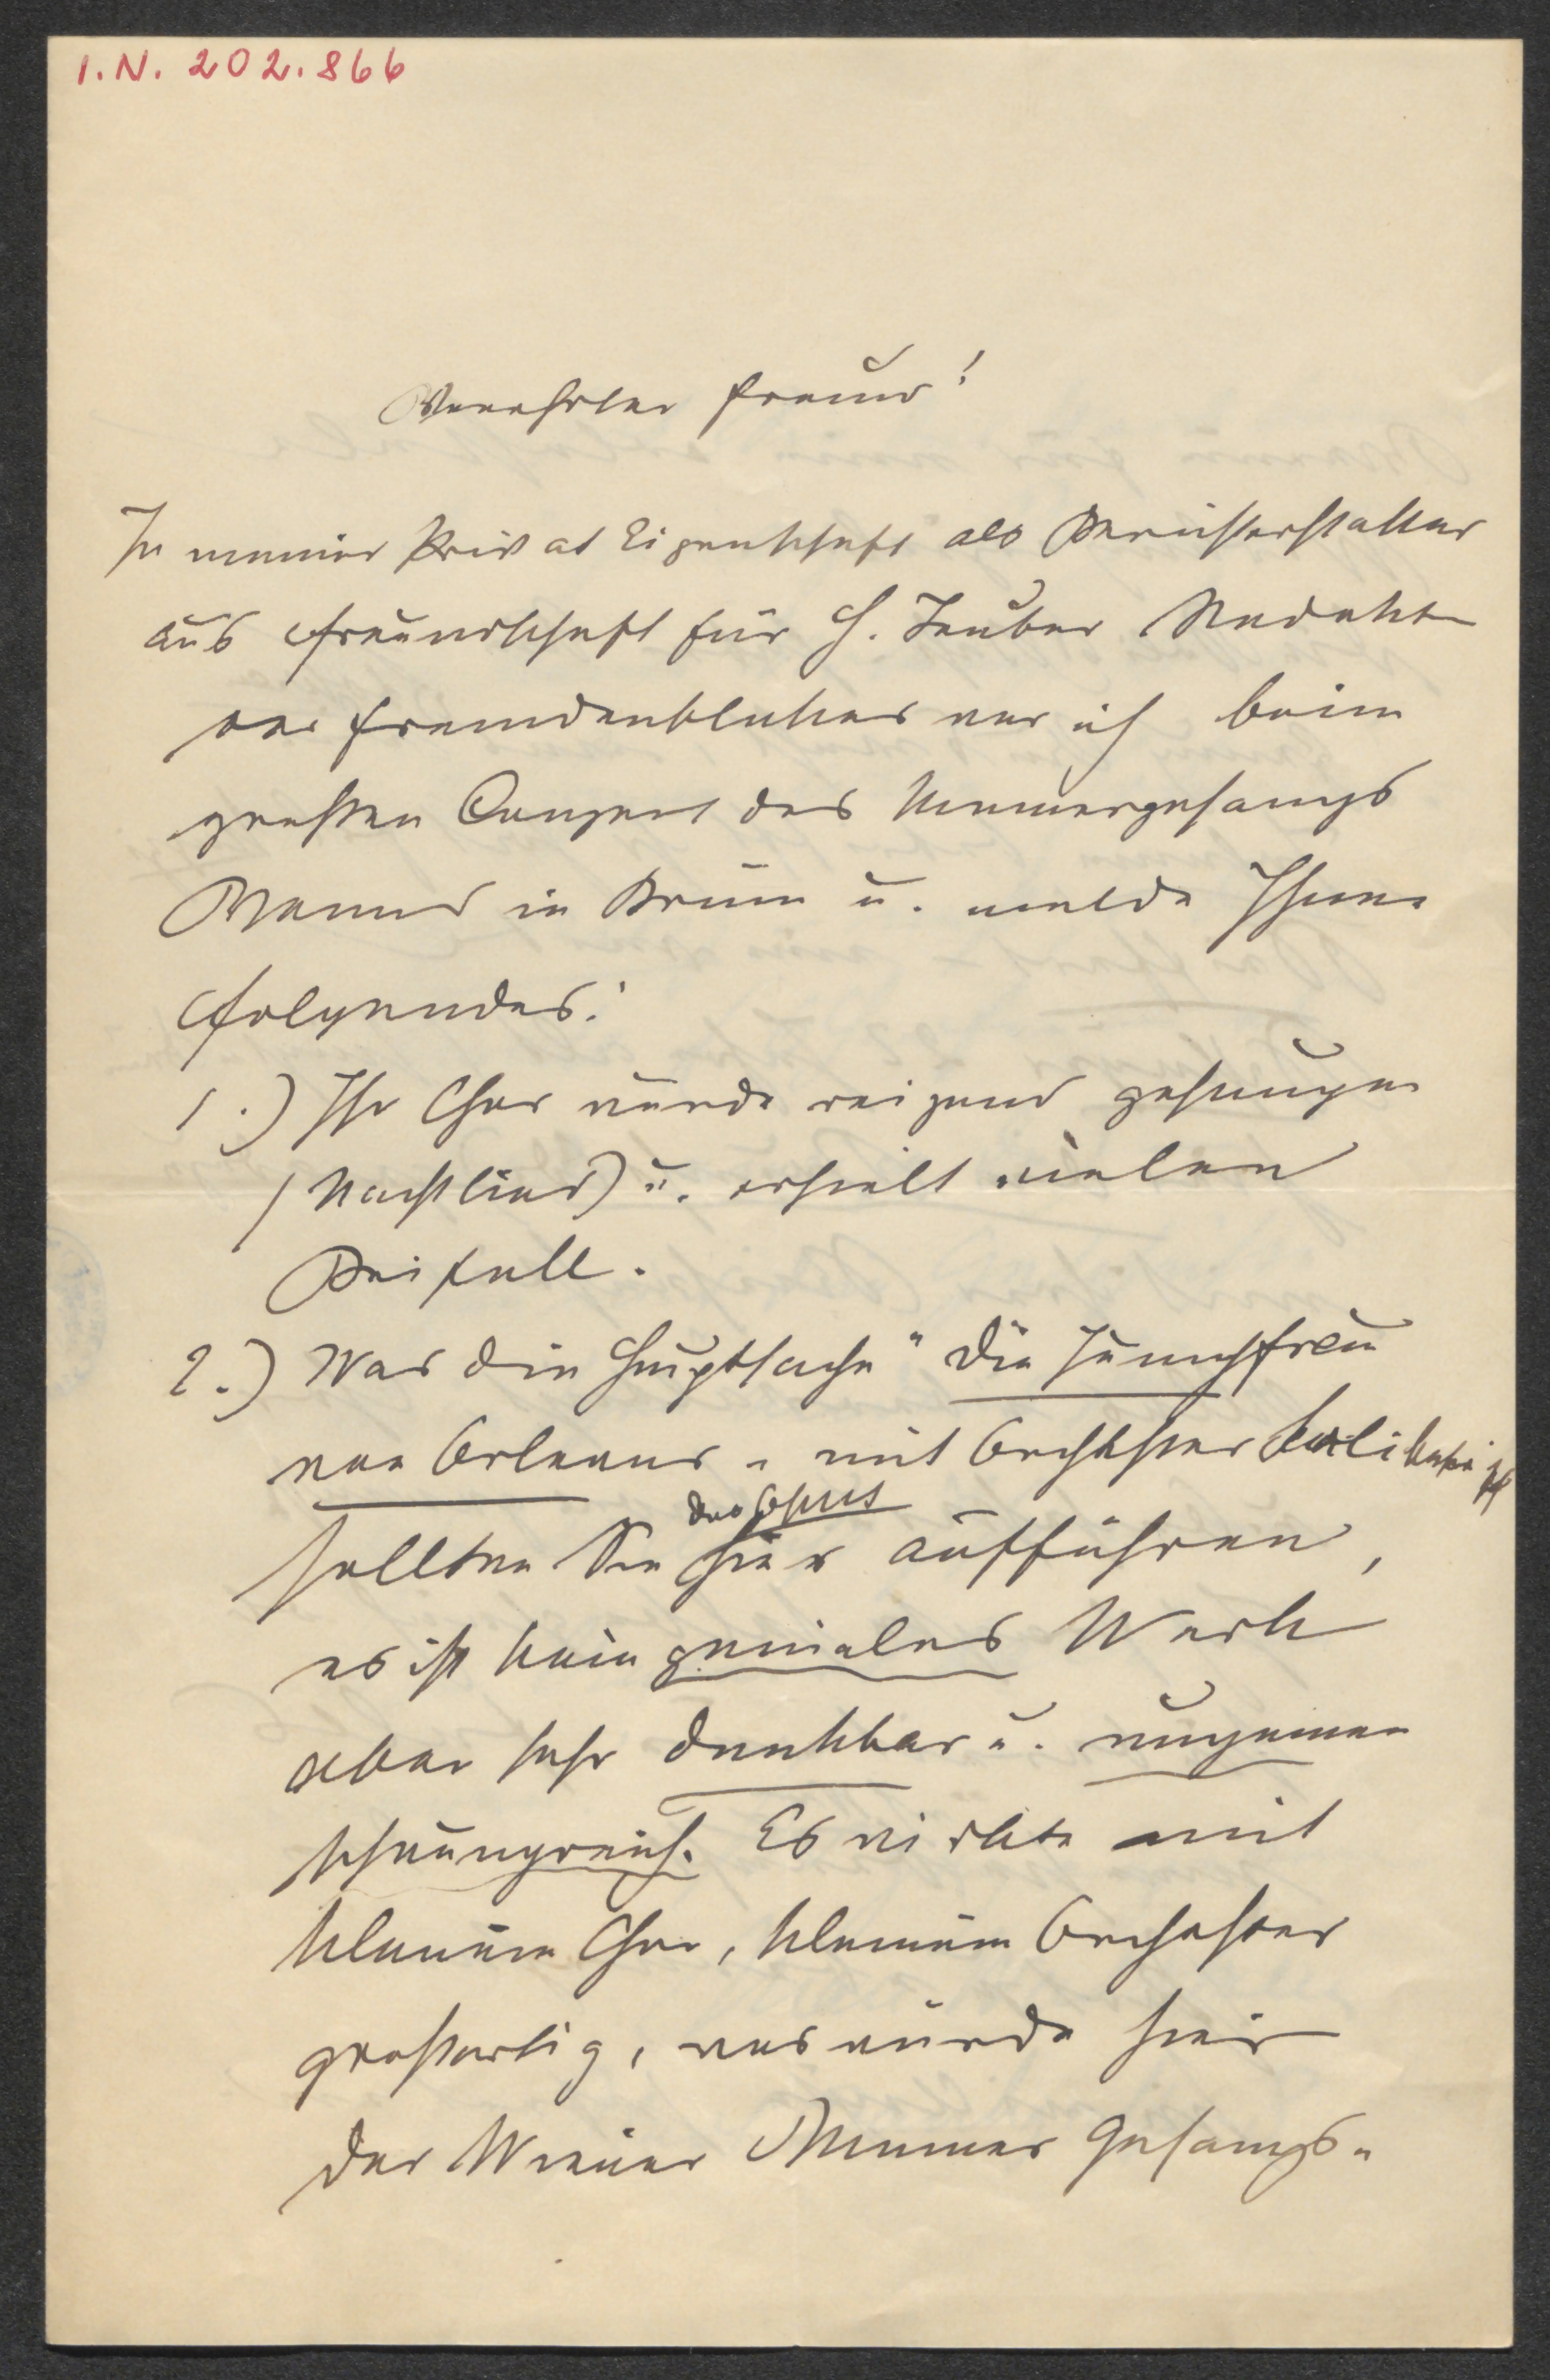 I.N. 202.866
Verehrter Freund!
In meiner Privat Eigenschaft als Berichterstatter
aus Freundschaft für H. Teuber Redakt
des Fremdenblattes war ich beim
großen Conzert des Männergesangs
Verein in Brünn u. melde Ihnen
Folgendes:
1.) Ihr Chor wurde reizend gesungen
(Nachtlied) u. erhielt vielen
Beifall.
2.) Was die Hauptsache "Die Jungfrau
von Orleans" mit Orchester
das Opus
sollten Sie hier aufführen,
es ist kein geniales Werk
aber sehr dankbar u. ungemein
schwungreich. Es wirkte mit
kleinem Chor, kleinem Orchester
großartig, was würde hier
der Wiener Männer Gesangs-